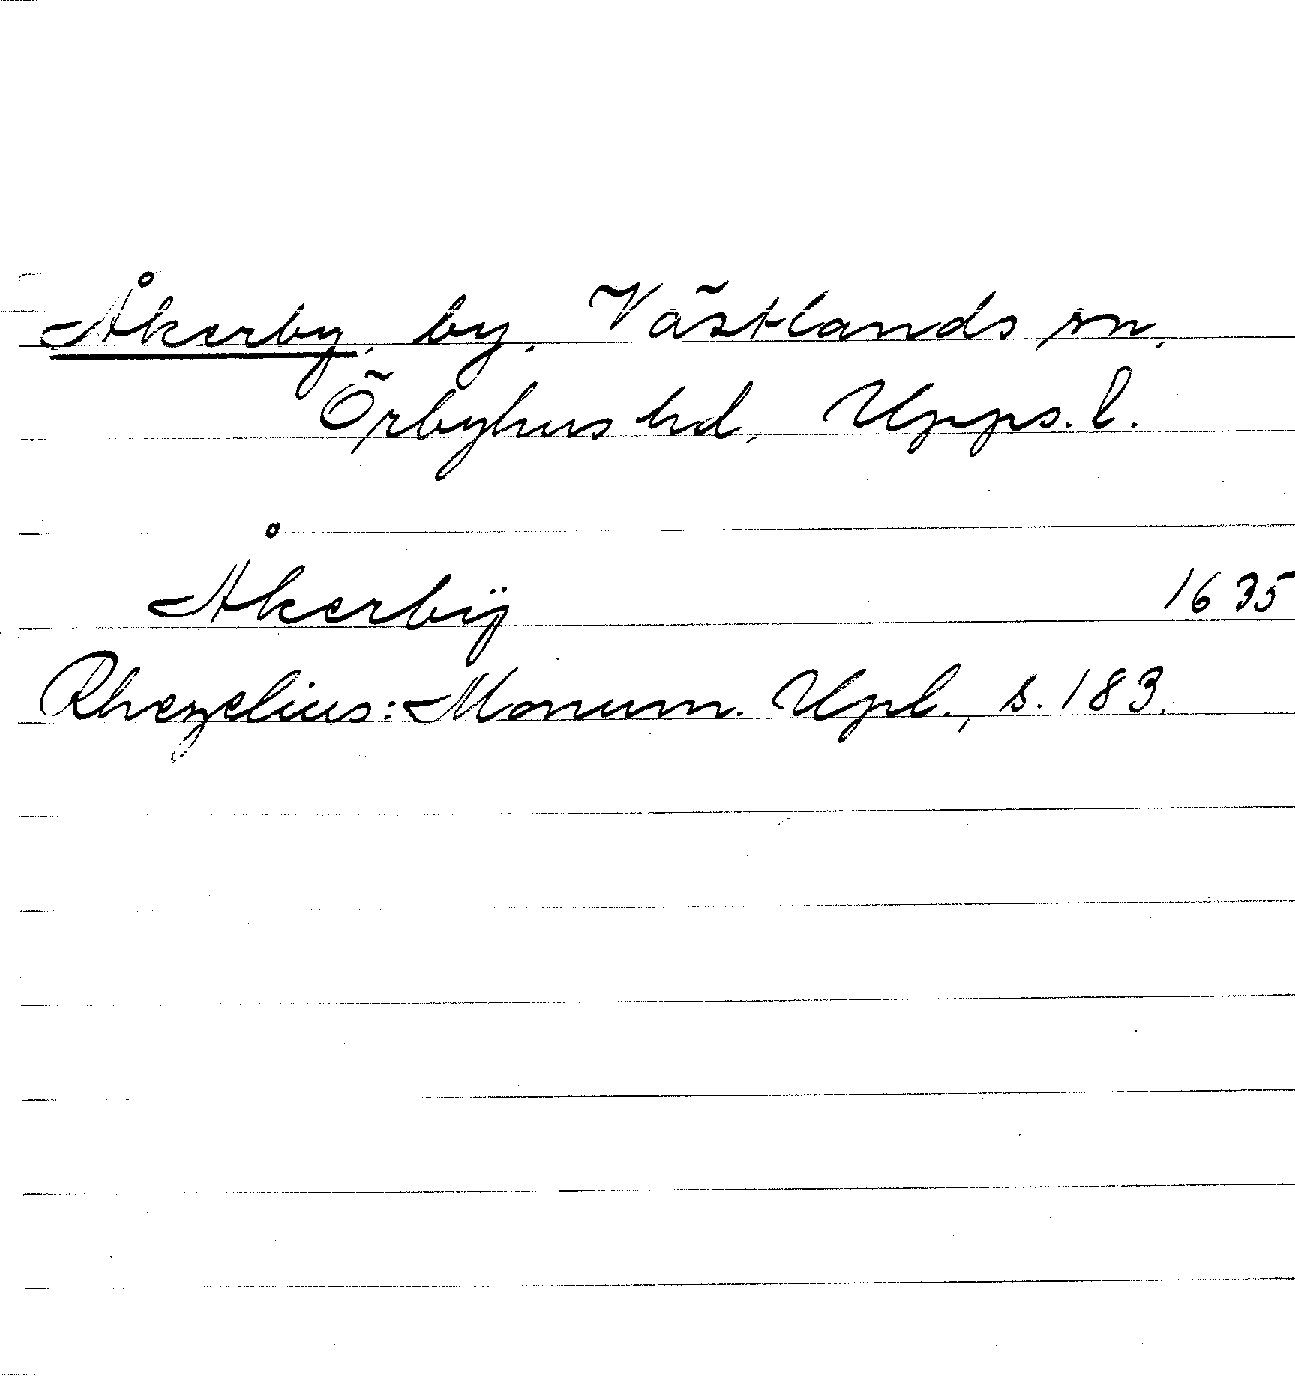 Åkerby, by, Västlands sn,
Örbyhus hd, Upps. l.
Åkerbÿ 1635
Rhezelius: Monum. Upl., s. 183.